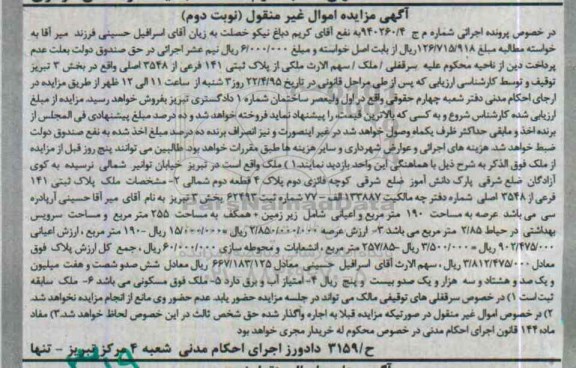 آگهی مزایده اموال غیر منقول (نوبت دوم)
در خصوص پرونده اجرائی شماره م ج ۹۴۰۲۶۰/۴ به نفع آقای کریم دباغ نیکو خصلت به زیان آقای اسرافیل حسینی فرزند میر آقا به
خواسته مطالبه مبلغ ۱۲۶/۷۱۵/۹۱۸ ریال از بابت اصل خواسته و مبلغ ۶/۰۰۰/۰۰۰ ریال نیم عشر اجرائی در حق صندوق دولت بعلت عدم
پرداخت دین از ناحیه محکوم علیه سرقفلی / ملک / سهم الارث ملکی از پلاک ثبتی ۱۴۱ فرعی از ۳۵۴۸ اصلی واقع در بخش ۳ تبریز
توقیف و توسط کارشناسی ارزیابی که پس از طی مراحل قانونی در تاریخ ۲۲/۴/۹۵ روز ۳ شنبه از ساعت ۱۱ الی ۱۲ ظهر از طریق مزایده در
اجرای احکام مدنی دفتر شعبه چهارم حقوقی واقع در اول ولیعصر ساختمان شماره ۱ دادگستری تبریز بفروش خواهد رسید. مزایده از مبلغ
ارزیابی شده کارشناس شروع و به کسی که بالاترین قیمت را پیشنهاد نماید فروخته خواهد شد و ده درصد مبلغ پیشنهادی فی المجلس از
برنده اخذ و مابقی حداکثر ظرف یکماه وصول خواهد شد در غیر اینصورت و نیز انصراف برنده ده درصد مبلغ اخذ شده به نفع صندوق دولت
ضبط خواهد شد. هزینه های اجرائی و عوارض شهرداری و سایر هزینه ها طبق مقررات خواهد بود. طالبین می توانند پنج روز قبل از مزایده
از ملک فوق الذکر به شرح ذیل با هماهنگی این واحد بازدید نمایند. ۱) ملک واقع است در تبریز خیابان توانیر شمالی نرسیده به کوی
آزادگان ضلع شرقی پارک دانش آموز ضلع شرقی کوچه فائزی دوم پلاک ۴ قطعه دوم شمالی ۲- مشخصات ملک پلاک ثبتی ۱۴۱
فرعی از ۳۵۴۸ اصلی شماره دفتر چه مالکیت ۲۳۸۸۷ ثبت شماره بخش تبریز به نام آقای میر آقا حسینی آریادره
سی می باشد عرصه به مساحت ۱۹۰ متر مربع و اعیانی شامل زیر زمین + همکف به مساحت ۲۵۵ متر مربع و مساحت سرویس
بهداشتی در حیاط ۲/۸۵ متر مربع می باشد ۳- ارزش عرصه ۲/۸۵۰/۰۰۰/۰۰۰ ریال = ۱۵/۰۰۰/۰۰۰ ریال - ۱۹۰ متر مربع ، ارزش اعیانی
۹۰۲/۴۷۵/۰۰۰ ریال = ۳/۵۰۰/۰۰۰ ریال - ۲۵۷/۸۵ متر مربع ، انشعابات و محوطه سازی ۶۰/۰۰۰/۰۰۰ ریال ، جمع کل ارزش پلاک فوق
معادل ۳/۸۱۲/۴۷۵/۰۰۰ ریال ، سهم الارث آقای اسرافیل حسینی معادل ۶۶۷/۱۸۳/۱۲۵ ریال معادل شش صدو شصت و هفت میلیون
و یک صد و هشتاد و سه هزار و یک صدو بیست و پنج ریال ۴- امتیاز آب و برق دارد ۵- ملک فوق مسکونی می باشد ۶- ملک سابقه
ثبت است ۱) در خصوص سرقفلی های توقیفی مالک می تواند در جلسه مزایده حضور یابد. عدم حضور وی مانع از انجام مزایده نخواهد شد.
۲) در خصوص اموال غیر منقول در صورتیکه مزایده قبلا به اجاره واگذار شده حق شخص ثالث در این خصوص لحاظ خواهد شد. ۳) مفاد
ماده ۱۴۴ قانون اجرای احکام مدنی در خصوص محکوم له خریدار مجری خواهد بود
ح/۳۱۵۹ دادورز اجرای احکام مدنی شعبه ۴ مرکز تبریز - تنها